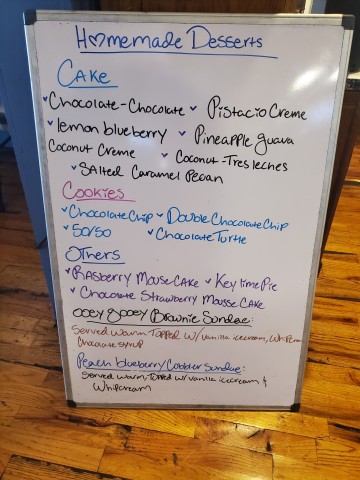 Homemade Desserts
Cake
Chocolate-Chocolate Pistacio Creme
lemon blueberry Pineapple guava
Coconut Creme Coconut-Tres leches
Salted Caramel Pecan
Cookies
Chocolate Chip Double Chocolate Chip
50/50 Chocolate Turtle
Others
Rasberry Mousse Cake Key lime Pie
Chocolate Strawberry Mousse Cake
ooey gooey Brownie Sundae:
Served warm, Topped w/vanilla icecream, Whipcream
Chocolate syrup
Peach blueberry Cobbler Sundae:
Served warm, topped w/vanilla icecream &
Whipcream